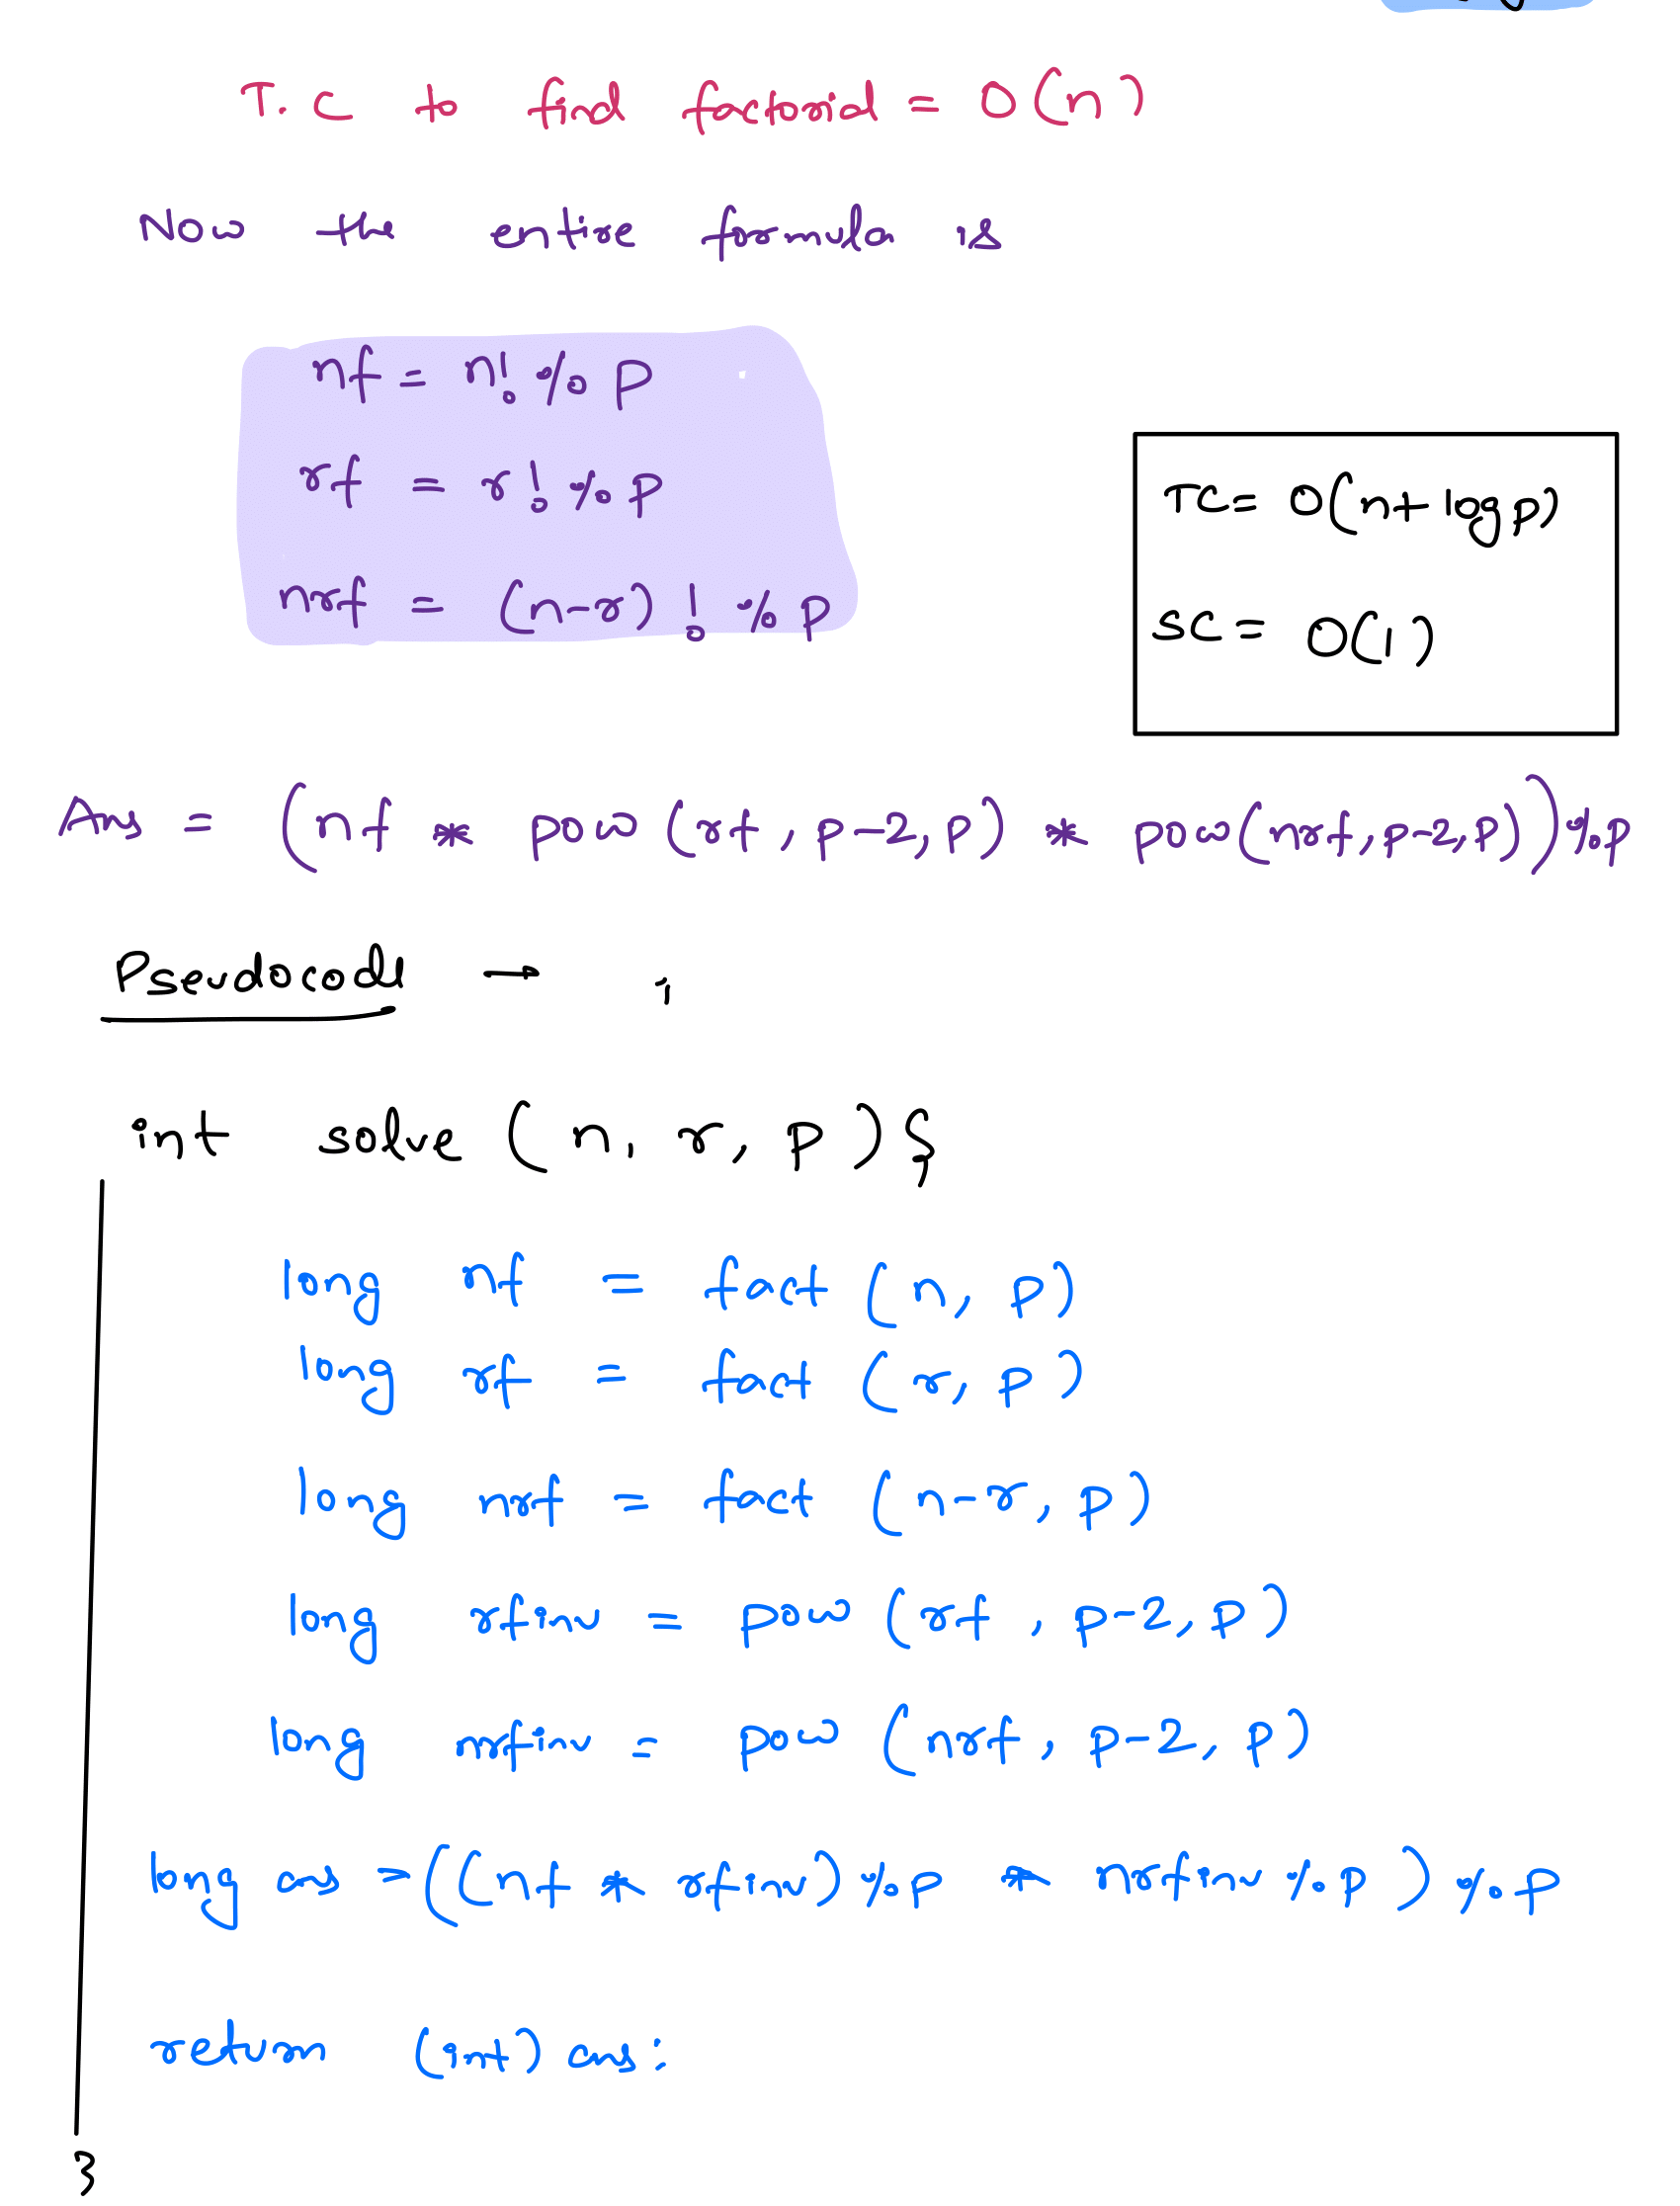 T.C to find factorial = O(n)
Now the entire formula is
nf = n! % p
rf = r! % p
nrf = (n-r)! % p
TC = O(n+logp)
SC = O(1)
Ans = (nf * pow(rf, p-2, p) * pow(nrf, p-2, p)) % p
Pseudocode → ;
int solve (n, r, p) {
long nf = fact (n, p)
long rf = fact (r, p)
long nrf = fact (n-r, p)
long rfinv = pow (rf, p-2, p)
long nrfinv = pow (nrf, p-2, p)
long ans = ((nf * rfinv) % p * nrfinv % p) % p
return (int) ans;
}